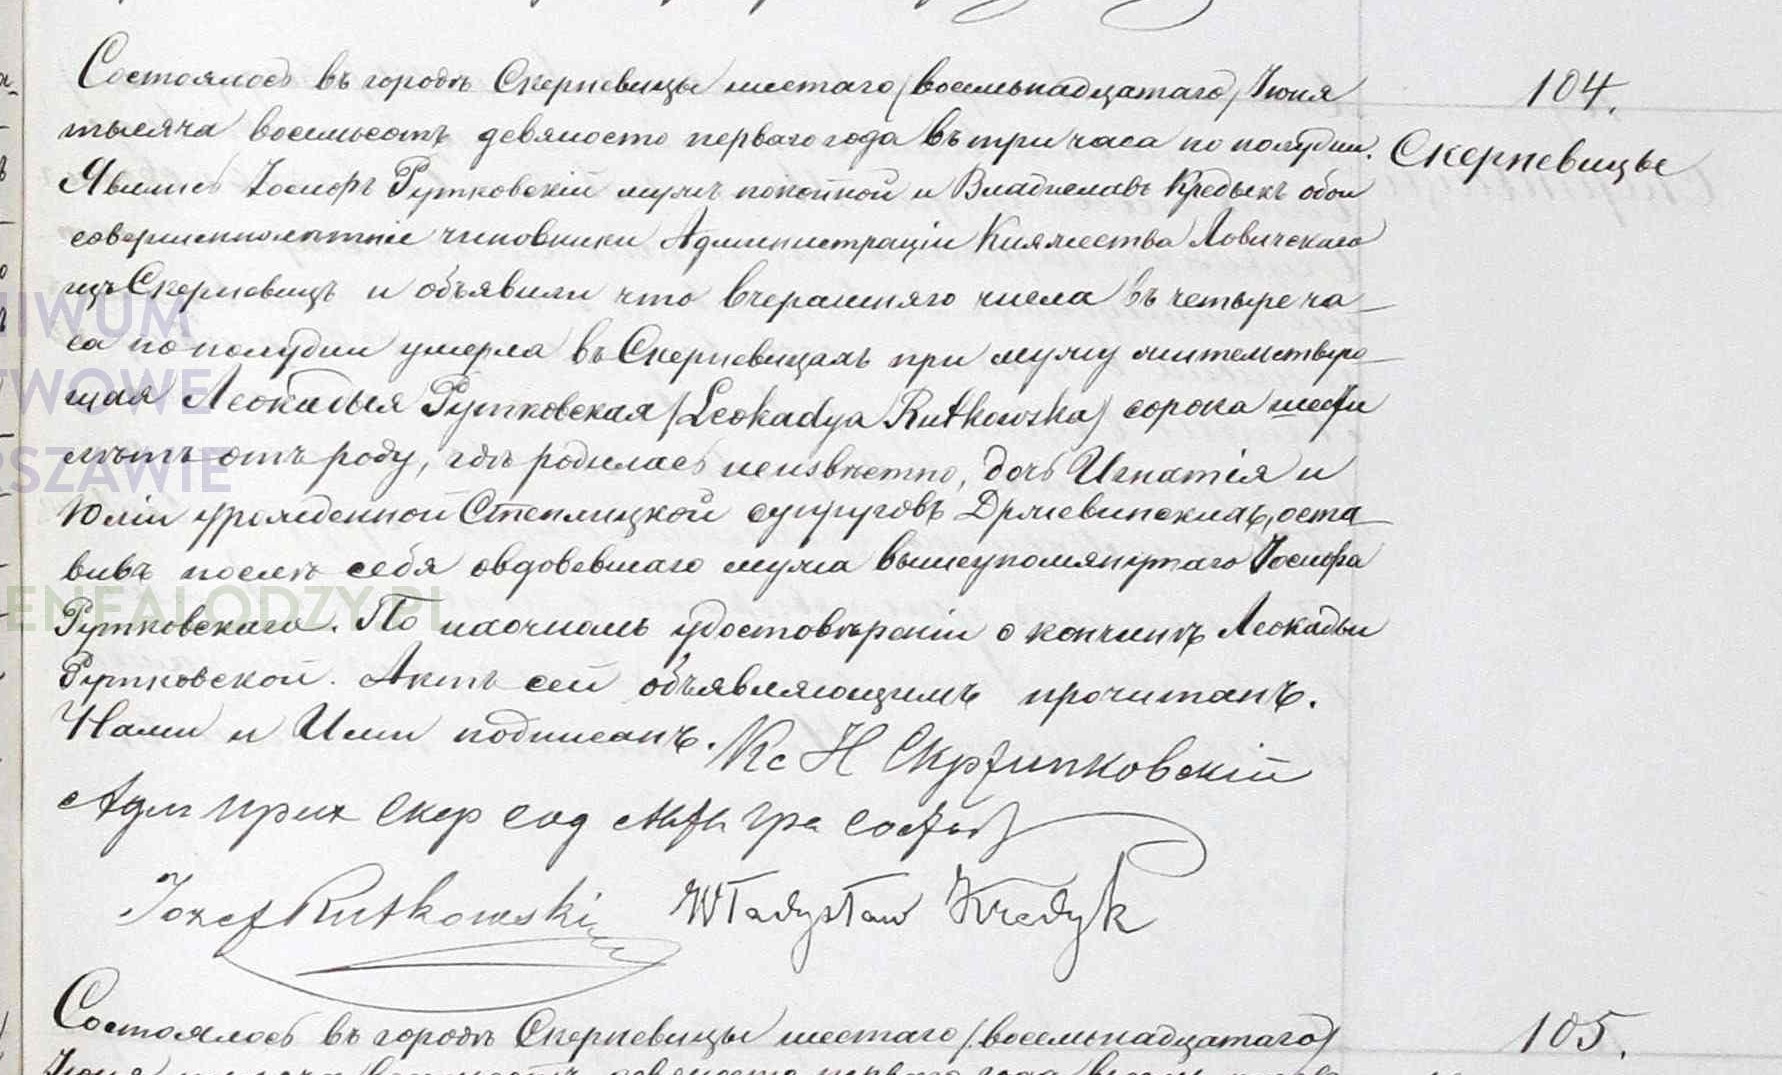 Состоялось въ городѣ Скерневицы шестаго (восемьнадцатаго) Іюня
104.
тысяча восемьсотъ девяносто перваго года въ три часа по полудни.
Скерневицы
Явились Іосифъ Рутковскій мужъ покойной и Владиславъ Кредыкъ обои
совершеннолѣтніе чиновники Администраціи Княжества Ловичскаго
изъ Скерневицъ и объявили что вчерашняго числа въ четыре ча-
са по полудни умерла въ Скерневицахъ при мужу жительствую-
щая Леокадыя Рутковская (Leokadya Rutkowska) сорока шести
лѣтъ отъ роду, гдѣ родилась неизвѣстно, дочь Игнатія и
Юліи урожденной Степлицкой супруговъ Држевинскихъ, оста-
вивъ послѣ себя овдовѣвшаго мужа вышеупомянутаго Іосифа
Рутковскаго. По наочномъ удостовѣреніи о кончинѣ Леокадыи
Рутковской. Актъ сей объявляющимъ прочитанъ.
Нами и Ими подписанъ. Кс Н Скржипковскій
Адм прих Скер сод акты гра сост
Józef Rutkowski Władysław Kredyk
Состоялось въ городѣ Скерневицы шестаго (восемьнадцатаго)
105.
Іюня тысяча восемьсотъ девяносто перваго года
IWUM
TWOWE
RSZAWIE
ENEALODZY.PL